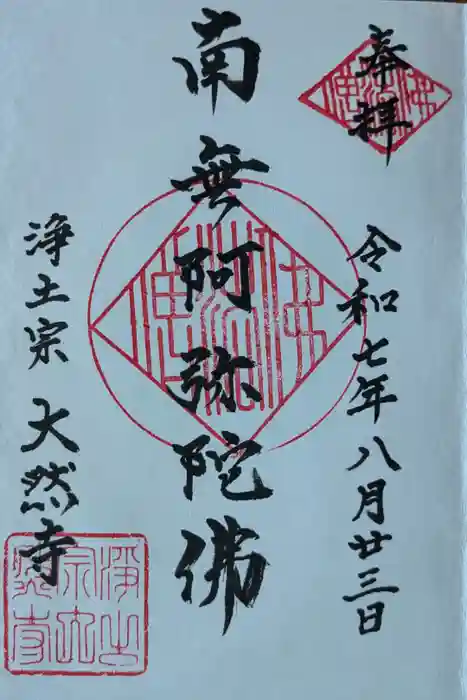 奉拝
令和七年八月廿三日
南無阿弥陀佛
浄土宗 大然寺
佛法僧寶
浄土宗大然寺